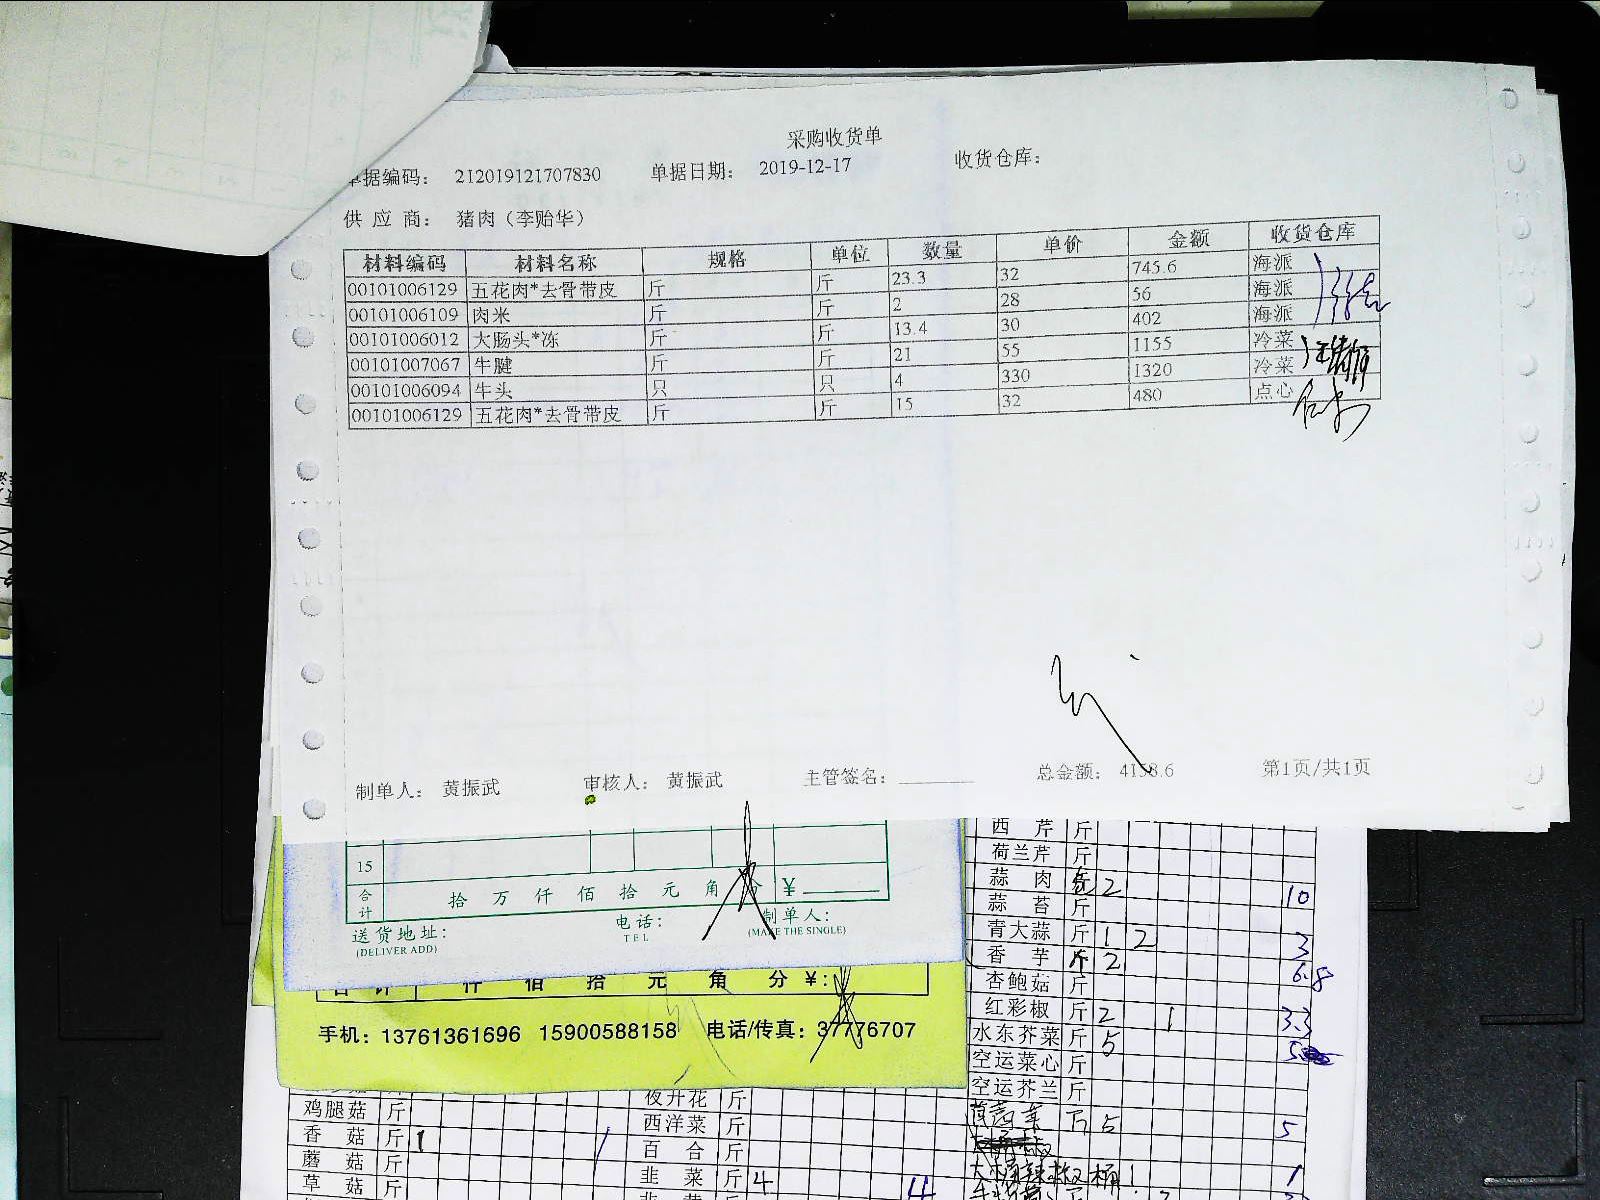 采购收货单
单据编码： 212019121707830 单据日期： 2019-12-17 收货仓库：
供 应 商： 猪肉（李贻华）
材料编码 材料名称 规格 单位 数量 单价 金额 收货仓库
00101006129 五花肉*去骨带皮 斤 斤 23.3 32 745.6 海派
00101006109 肉米 斤 斤 2 28 56 海派
00101006012 大肠头*冻 斤 斤 13.4 30 402 海派
00101007067 牛腱 斤 斤 21 55 1155 冷菜
00101006094 牛头 只 只 4 330 1320 冷菜
00101006129 五花肉*去骨带皮 斤 斤 15 32 480 点心
制单人： 黄振武 审核人： 黄振武 主管签名： 总金额： 4158.6 第1页/共1页
15
合计 拾 万 仟 佰 拾 元 角 分 ¥
送货地址： 电话： 制单人：
(DELIVER ADD) TEL (MAKE THE SINGLE)
合 计 仟 佰 拾 元 角 分 ¥：
手机：13761361696 15900588158 电话/传真：37776707
西 芹 斤
荷兰芹 斤
蒜 肉 2 10
蒜 苔 斤
青大蒜 斤 1 2 3
香 芋 斤 2 6.8
杏鲍菇 斤
红彩椒 斤 2 1 3.3
水东芥菜 斤 5
空运菜心 斤
空运芥兰 斤
5 5
鸡腿菇 斤
香 菇 斤 1 1
蘑 菇 斤
草 菇 斤
夜开花 斤
西洋菜 斤
百 合 斤
韭 菜 斤 4 4